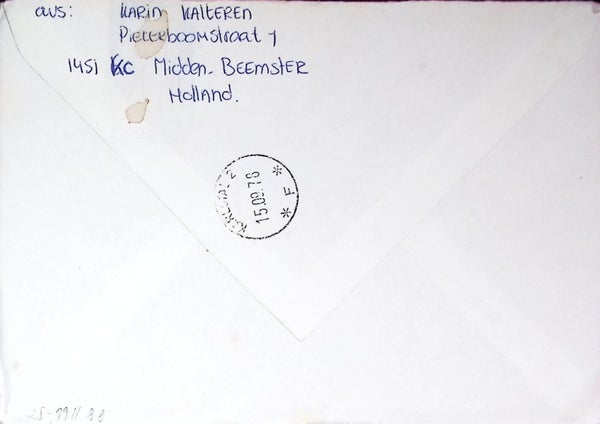 aus: KARIN KALTEREN
Pieterboomstraat 7
1451 KC Midden-BEEMSTER
Holland.
15.09.78
* F *